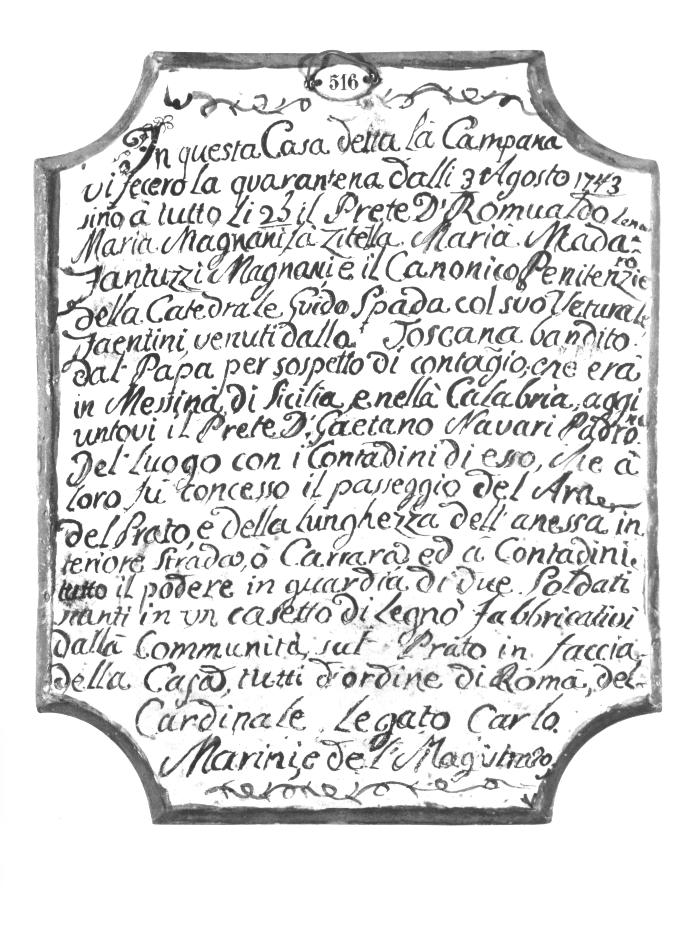 516
In questa Casa detta là Campana
vi fecero la quarantena dalli 3 Agosto 1743
sino à tutto li 23 il Prete D. Romualdo
Maria Magnani là Zitella Maria Mada=
Fantuzzi Magnani, e il Canonico Penitenzie
ro
della Catedrale Guido Spada col suo Veturale
Faentini venuti dalla Toscana bandito
dal Papa per sospetto di contagio, che erà
in Messina di Sicilia, e nellà Calabria, aggi
untovi il Prete D. Gaetano Navari Padro
ne
Del luogo con i Contadini di esso, che à
loro fù concesso il passeggio del
del Prato, e della lunghezza dell'anessa in
teriore strada, ò Carrara, ed à Contadini
tutto il podere in guardia di due Soldati
stanti in un casetto di legno fabbricativi
dallà Communità, sul Prato in faccia
della Casa, tutti d'ordine di Roma, del
Cardinale Legato Carlo
Marini, e del Magistrato